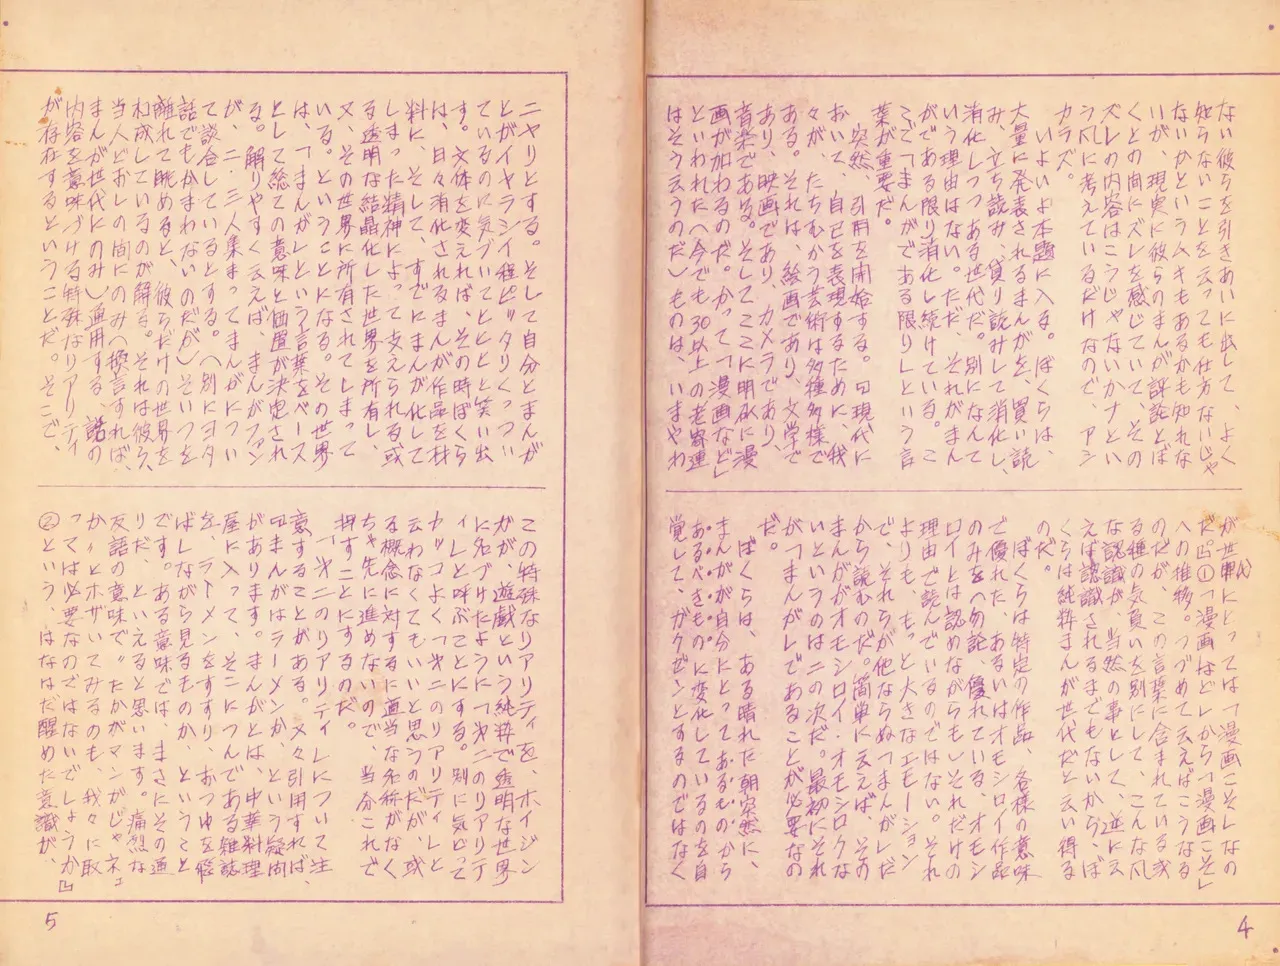 ない彼らを引きあいに出して、よく
知らないことを云っても仕方ないじゃ
ないかというムキもあるかも知れな
いが、現実に彼らのまんが評論とぼ
くとの間にズレを感じていて、その
ズレの内容はこうじゃないかナとい
う風に考えているだけなので、アシ
カラズ。
いよいよ本題に入る。ぼくらは、
大量に発表されるまんがを、買い読
み、立ち読み、貸り読みして消化し、
消化しつつある世代だ。別になんて
いう理由はない。ただ、それがまん
がである限り消化し続けている。こ
こで「まんがである限り」という言
葉が重要だ。
突然、引用を開始する。『現代に
おいて、自己を表現するために、我
々が、たちむかう芸術は多種多様で
ある。それは、絵画であり、文学で
あり、映画であり、カメラであり、
音楽である。そしてここに明确に漫
画が加わるのだ。かって「漫画など」
といわれた(今でも30以上の老寄連
はそう云うのだ)ものは、いまやわ
が世代にとっては「漫画こそ」なの
だ。』①「漫画はど」から「漫画こそ」
への推移。つづめて云えばこうなる
のだが、この言葉に含まれている或
る種の気負いを別にして、こんな風
な認識が、当然の事として、逆に云
えば認識されるまでもないから、ぼ
くらは純粋まんが世代だと云い得る
のだ。
ぼくらは特定の作品、各様の意味
で優れた、あるいはオモシロイ作品
のみを(勿論、優れている、オモシ
ロイとは認めながらも)それだけの
理由で読んでいるのではない。それ
よりも、もっと大きなエモーション
で、それらが他ならぬ「まんが」だ
から読むのだ。簡単に云えば、その
まんががオモシロイ・オモシロクな
いというのは二の次だ。最初にそれ
が「まんが」であることが必要なの
だ。
ぼくらは、ある晴れた朝突然に、
まんがが自分にとってあるものから
あるべきものに変化しているのを自
覚して、ガクゼンとするのではなく
ニヤリとする。そして自分とまんが
とがイヤラシイ程ピッタリくっつい
ているのに気づいてヒヒヒと笑い出
す。文体を変えれば、その時ぼくら
は、日々消化されるまんが作品を材
料に、そして、すでにまんが化して
しまった精神によって支えられる或
る透明な結晶化した世界を所有し、
又、その世界に所有されてしまって
いる。ということになる。その世界
は、「まんが」という言葉をベース
として総ての意味と価置が決定され
る。解りやすく云えば、まんがファン
が、二・三人集まってまんがについ
て談合しているとする。(別にヨタ
話でもかまわないのだが)そいつを
離れて眺めると、彼らだけの世界を
構成しているのが解る。それは彼ら、
当人どおしの間にのみ(換言すれば、
まんが世代にのみ)通用する、話の
内容を意味づける特殊なリアリティ
が存在するということだ。そこで、
この特殊なリアリティを、ホイジン
ガが、遊戯という純粋で透明な世界
に名づけたように「第二のリアリテ
ィ」と呼ぶことにする。別に気どって
カッコよく「第二のリアリティ」と
云わなくてもいいと思うのだが、或
る概念に対するに適当な名称がなく
ちゃ先に進めないので、当分これで
押すことにするのだ。
「第二のリアリティ」について注
意することがある。又々引用すれば、
『まんがはラーメンか、という疑問
があります。まんがとは、中華料理
屋に入って、そこにつんである雑誌
を、ラーメンをすすり、おつゆを飛
ばしながら見るものか、ということ
です。ある意味では、まさにその通
りだ、といえると思います。痛烈な
反語の意味で。たかがマンガじゃネェ
か〃とホザいてみるのも、我々に取
っては必要なのではないでしょうか』
②という、はなはだ醒めた意識が、
5
4